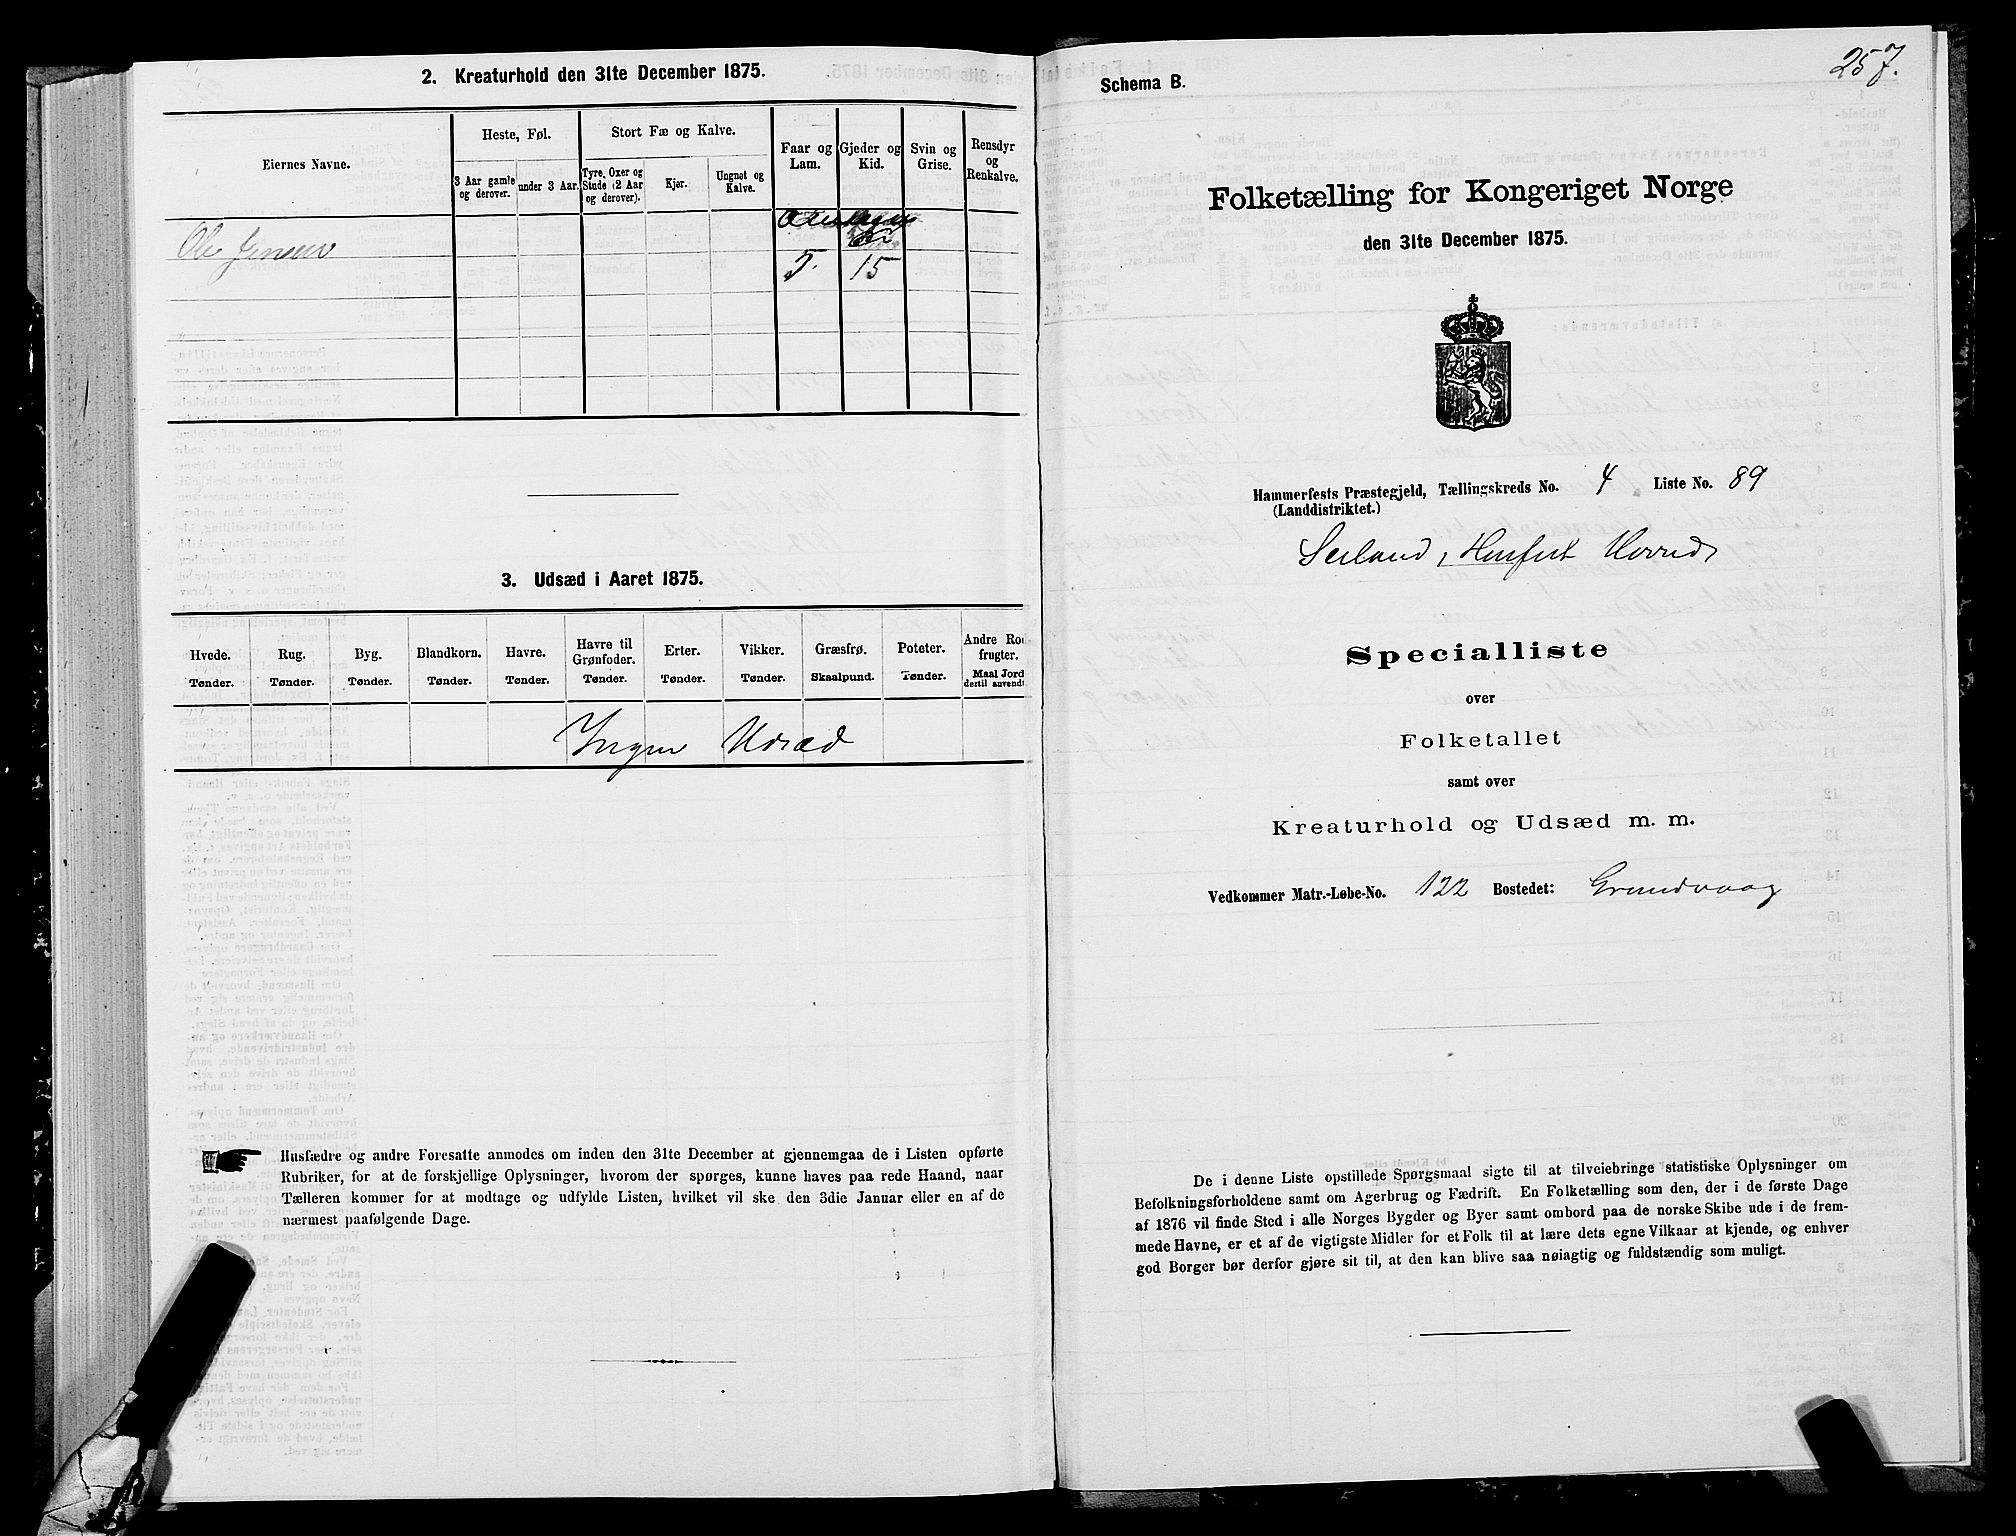 2. Kreaturhold den 31te December 1875.
Eiernes Navne.
Heste, Føl.
Stort Fæ og Kalve.
Faar og Lam.
Gjeder og Kid.
Svin og Grise.
Rensdyr og Renkalve.
3 Aar gamle og derover.
under 3 Aar.
Tyre, Oxer og Stude (2 Aar og derover).
Kjør.
Ungnøt og Kalve.
Ole Jensen
5. 15
3. Udsæd i Aaret 1875.
Hvede. Rug. Byg. Blandkorn. Havre. Havre til Grønfoder. Erter. Vikker. Græsfrø. Poteter. Andre Rod frugter.
Tønder. Tønder. Tønder. Tønder. Tønder. Tønder. Tønder. Tønder. Skaalpund. Tønder. Maal Jord dertil anvendt
Ingen Udsæd
Husfædre og andre Foresatte anmodes om inden den 31te December at gjennemgaa de i Listen opførte
Rubriker, for at de forskjellige Oplysninger, hvorom der spørges, kunne haves paa rede Haand, naar
Tælleren kommer for at modtage og udfylde Listen, hvilket vil ske den 3die Januar eller en af de
nærmest paafølgende Dage.
257.
Schema B.
Folketælling for Kongeriget Norge
den 31te December 1875.
Hammerfests Præstegjeld, Tællingskreds No. 4 Liste No. 89
(Landdistriktet.)
Seiland,
Specialliste
over
Folketallet
samt over
Kreaturhold og Udsæd m. m.
Vedkommer Matr.-Løbe-No. 122 Bostedet: Grundvaag
De i denne Liste opstillede Spørgsmaal sigte til at tilveiebringe statistiske Oplysninger om
Befolkningsforholdene samt om Agerbrug og Fædrift. En Folketælling som den, der i de første Dage
af 1876 vil finde Sted i alle Norges Bygder og Byer samt ombord paa de norske Skibe ude i de frem-
mede Havne, er et af de vigtigste Midler for et Folk til at lære dets egne Vilkaar at kjende, og enhver
god Borger bør derfor gjøre sit til, at den kan blive saa nøiagtig og fuldstændig som muligt.